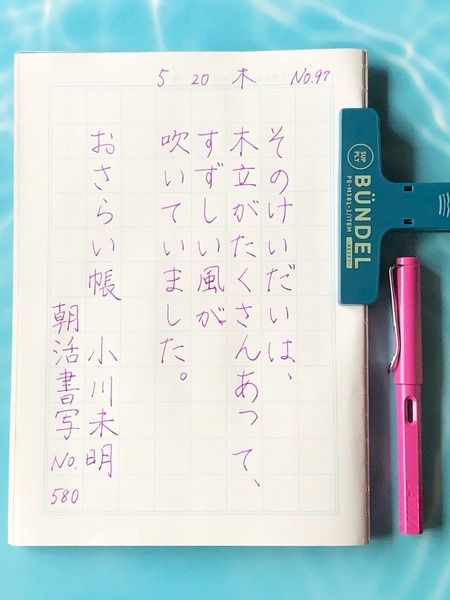 5 20 木 No.97
そのけいだいは、
木立がたくさんあって、
すずしい風が
吹いていました。
おさらい帳 小川未明
朝活書写 No. 580
SUP PLY
BÜNDEL